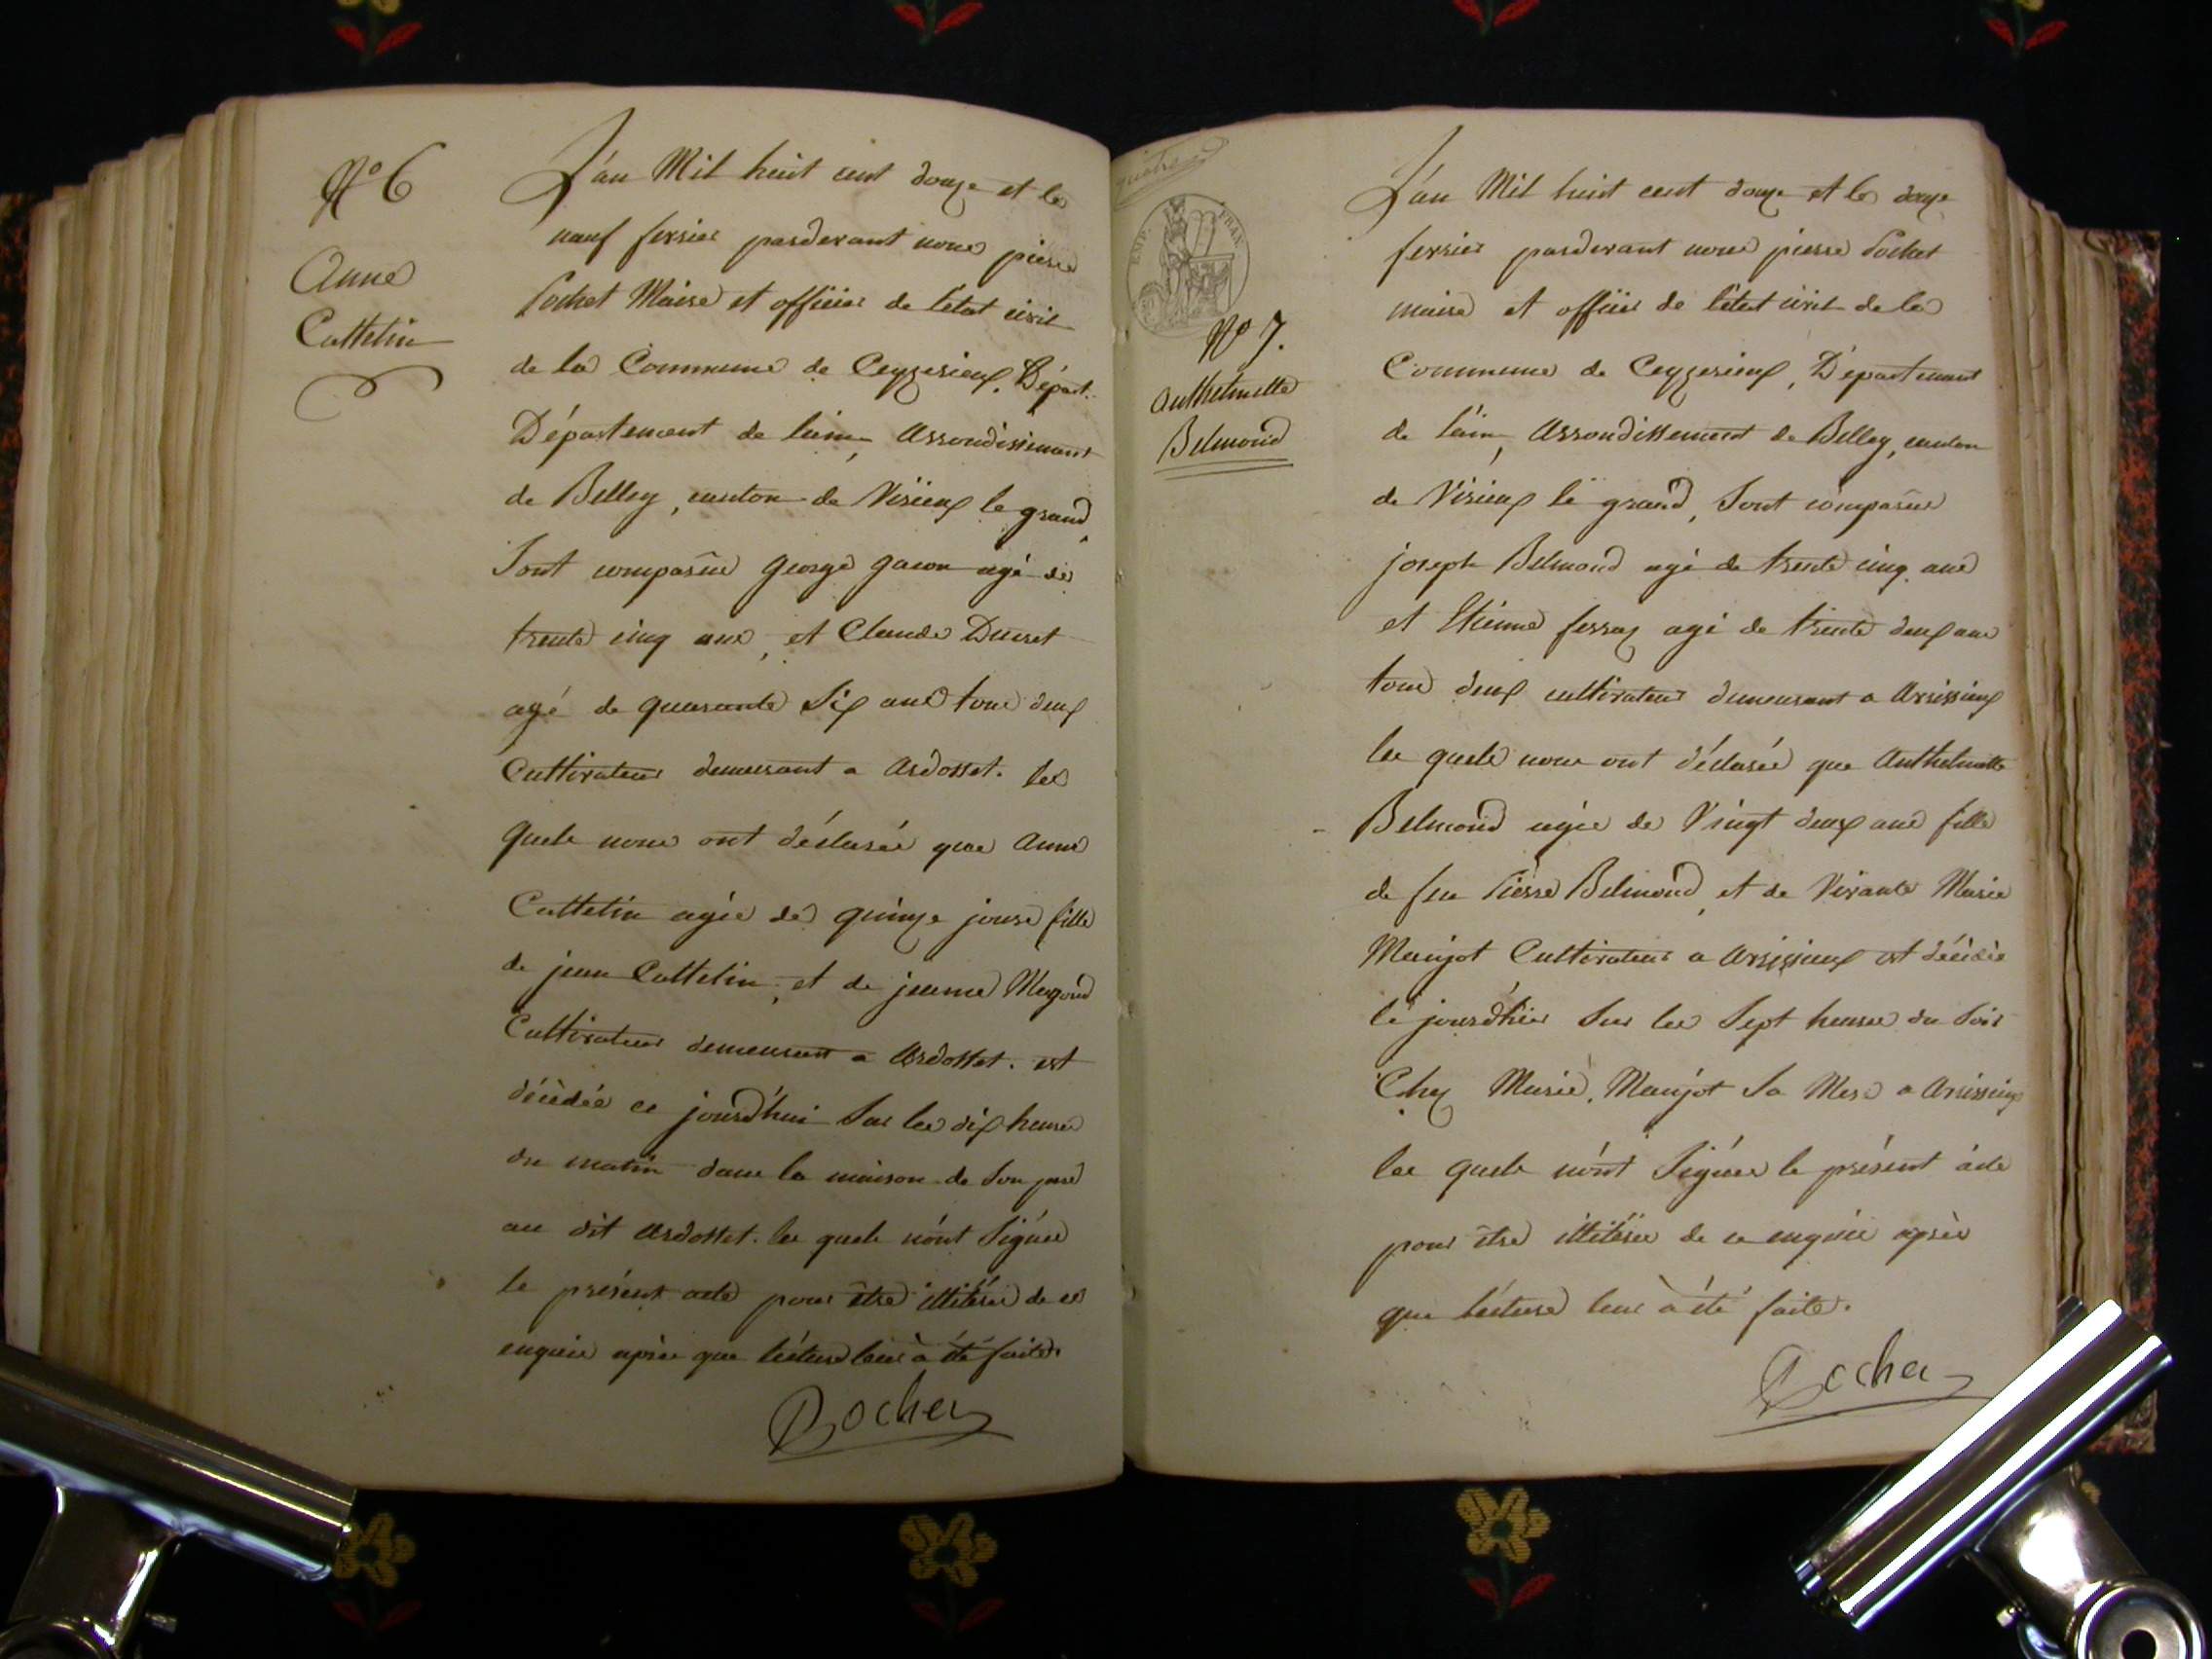 N° 6
Anne
Cattelin
L'an Mil huit cent douze et le
neuf fevrier pardevant nous pierre
Pochet Maire et officier de l'état civil
de la Commune de Ceyzerieux, Départ.
Département de l'ain, Arrondissement
de Belley, canton de Virieux le grand,
Sont comparûs george gacon agé de
trente cinq ans, et Claude Ducret
agé de quarante Six ans tous deux
Cultivateurs demeurant a Ardosset. les
quels nous ont déclarés que Anne
Cattelin agée de quinze jours fille
de jean Cattelin, et de jeanne
Cultivateurs demeurant a Ardosset. est
décédée ce jourd'hui Sur les dix heures
du matin dans la maison de Son pere
au dit Ardosset. les quels n'ont Signés
le présent acte pour être illitérés de ce
enquis après que lécture leur à été faite.
Pochet
EMP. FRAN.
N° 7.
Anthelmette
Belmond
L'an Mil huit cent douze et le douze
fevrier pardevant nous pierre Pochet
maire et officier de l'état civil de la
Commune de Ceyzerieux, Département
de l'ain, Arrondissement de Belley, canton
de Virieux le grand, Sont comparûs
joseph Belmond agé de trente cinq ans
et Etienne ferraz agé de trente deux ans
tous deux cultivateurs demeurant a Avrissieux
les quels nous ont déclarés que Anthelmette
Belmond agée de Vingt deux ans fille
de feu Pierre Belmond, et de Vivante Marie
Maujot Cultivateurs a Avrissieux est décédée
le jourd'hier Sur les Sept heures du Soir
Chez Marie, Maujot Sa Mere a Avrissieux
les quels n'ont Signés le présent acte
pour être illitérés de ce enquis après
que lécture leur à été faite.
Pochet